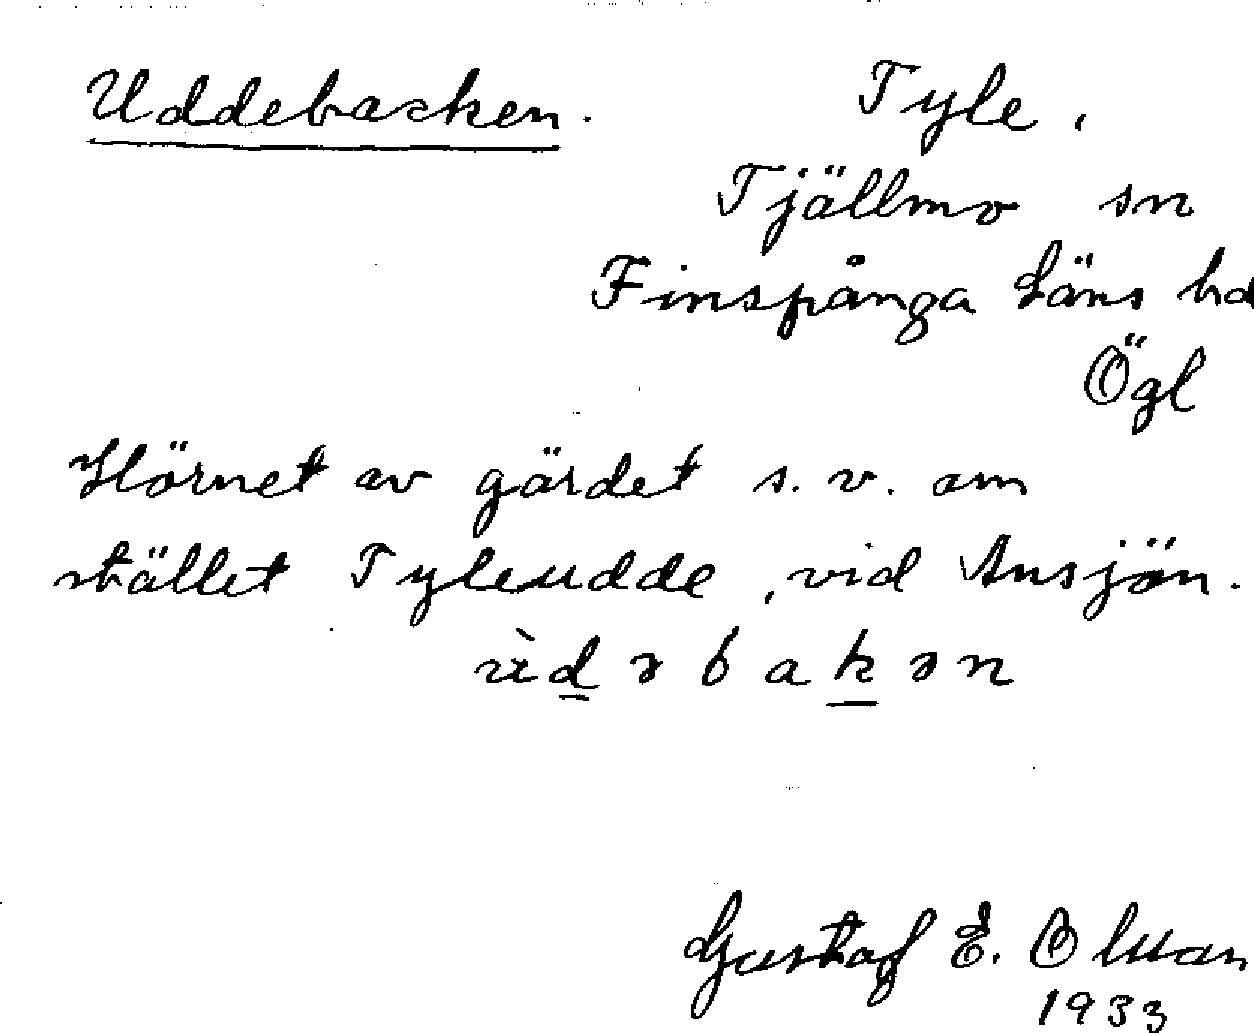 Uddebacken. Tyle,
Tjällmo sn
Finspånga läns hd
Ögl
Hörnet av gärdet s.v. om
stället Tyleudde, vid Ansjön.
ùdəbakən
Gustaf E.
1933